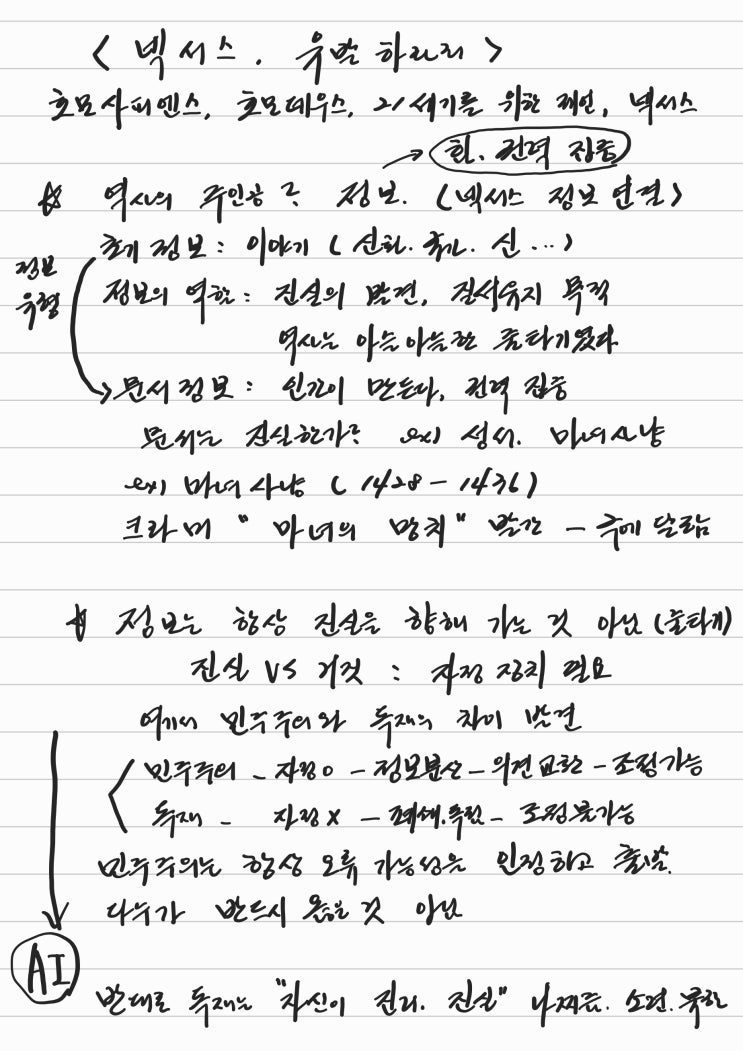 < 넥서스. 유발 하라리 >
호모사피엔스, 호모데우스, 21세기를 위한 제언, 넥서스
→ 힘. 권력 집중
☆ 역사의 주인공? 정보. (넥서스 정보 연결)
초기 정보 : 이야기 (신화. 국가. 신 ...)
정보 유형
정보의 역할 : 진실의 발견, 질서유지 목적
역사는 아슬아슬한 줄타기였다
문서정보 : 인간이 만든다, 권력 집중
문서는 진실한가? ex) 성서. 마녀사냥
ex) 마녀사냥 ( 1428 - 1436 )
크라머 " 마녀의 망치" 발간 -
☆ 정보는 항상 진실을 향해 가는 것 아님 (줄타기)
진실 VS 거짓 : 자정 장치 필요
여기서 민주주의와 독재의 차이 발견
민주주의 - 자정 O - 정보분산 - 의견교환 - 조정가능
독재 - 자정 X - 폐쇄. - 조정불가능
민주주의는 항상 오류 가능성을 인정하고 출발.
다수가 반드시 옳은 것 아님
AI
반대로 독재는 "자신이 진리. 진실" 나찌즘. 소련. 북한